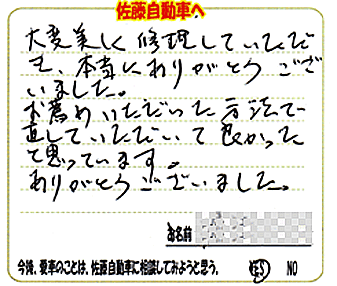 佐藤自動車へ
大変美しく修理していただ
き、本当にありがとうござ
いました。
お薦めいただいた方法で
直していただいて良かった
と思っています。
ありがとうございました。
お名前
今後、愛車のことは、佐藤自動車に相談してみようと思う。 YES NO